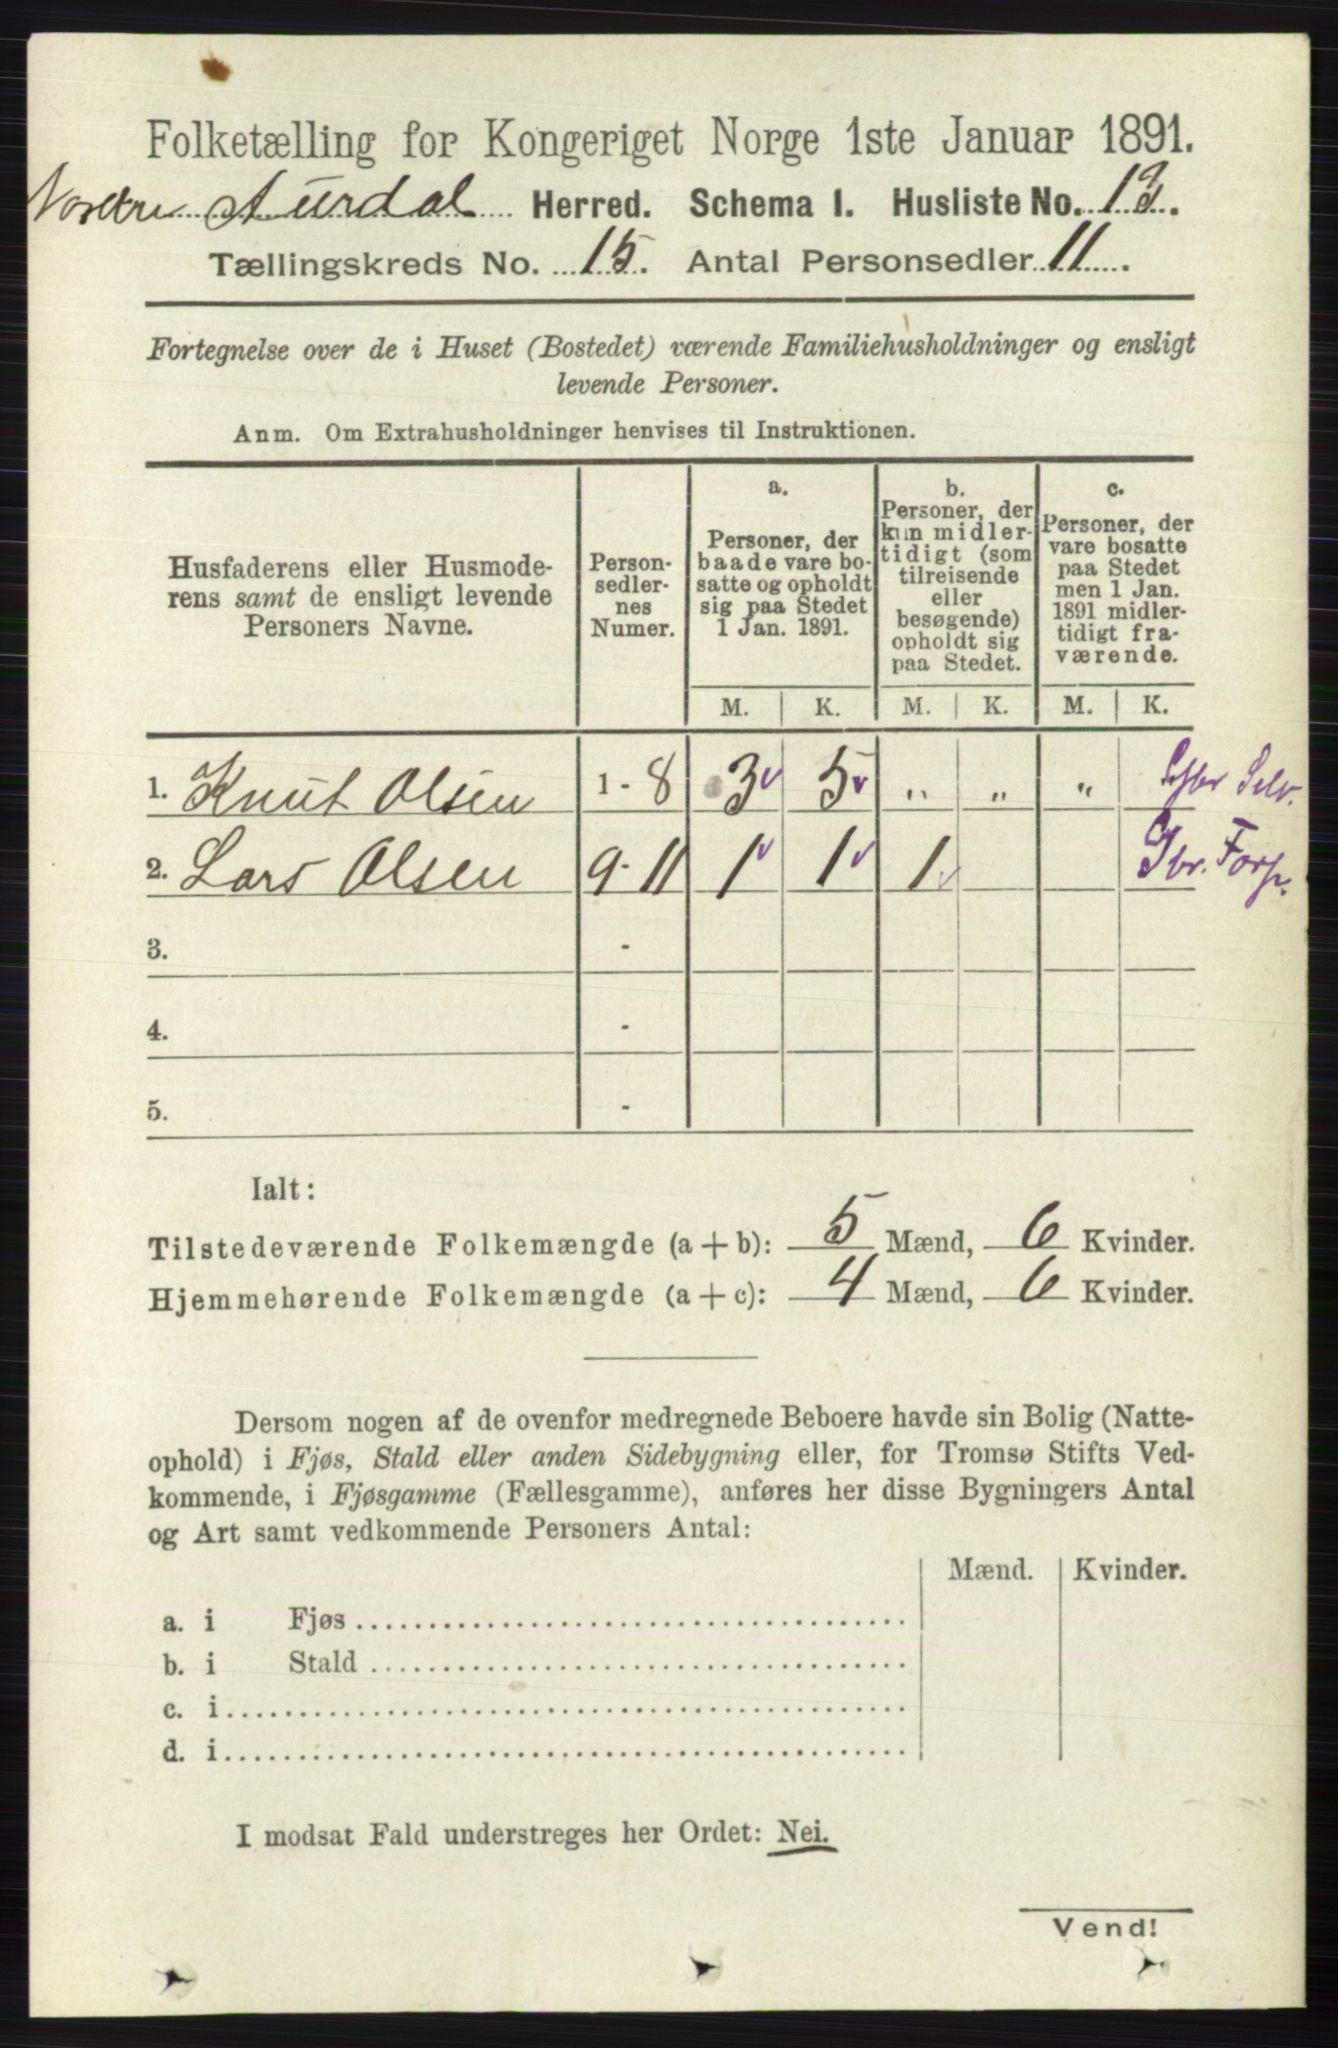 Folketælling for Kongeriget Norge 1ste Januar 1891.
Nordre Aurdal Herred. Schema I. Husliste No. 13.
Tællingskreds No. 15. Antal Personsedler 11.
Fortegnelse over de i Huset (Bostedet) værende Familiehusholdninger og ensligt
levende Personer.
Anm. Om Extrahusholdninger henvises til Instruktionen.
Husfaderens eller Husmode-
rens samt de ensligt levende
Personers Navne.
Person-
sedler-
nes
Numer.
a.
Personer, der
baade vare bo-
satte og opholdt
sig paa Stedet
1 Jan. 1891.
b.
Personer, der
kun midler-
tidigt (som
tilreisende
eller
besøgende)
opholdt sig
paa Stedet.
c.
Personer, der
vare bosatte
paa Stedet
men 1 Jan.
1891 midler-
tidigt fra-
værende.
M. K. M. K. M. K.
1. Knut Olsen 1 - 8 3 5 " " " Selv.
2. Lars Olsen 9 - 11 1 1 1 Gbr. Forp.
3. -
4. -
5. -
Ialt:
Tilstedeværende Folkemængde (a + b): 5 Mænd, 6 Kvinder.
Hjemmehørende Folkemængde (a + c): 4 Mænd, 6 Kvinder.
Dersom nogen af de ovenfor medregnede Beboere havde sin Bolig (Natte-
ophold) i Fjøs, Stald eller anden Sidebygning eller, for Tromsø Stifts Ved-
kommende, i Fjøsgamme (Fællesgamme), anføres her disse Bygningers Antal
og Art samt vedkommende Personers Antal:
Mænd. Kvinder.
a. i Fjøs
b. i Stald
c. i
d. i
I modsat Fald understreges her Ordet: Nei.
Vend!